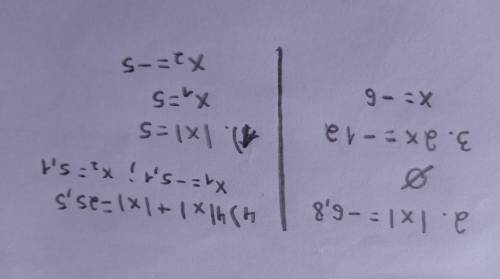 2. |x| = -6,8
∅
3. 2x = -12
x = -6
4) 4|x| + |x| = 25,5
x₁ = -5,1; x₂ = 5,1
1). |x| = 5
x₁ = 5
x₂ = -5